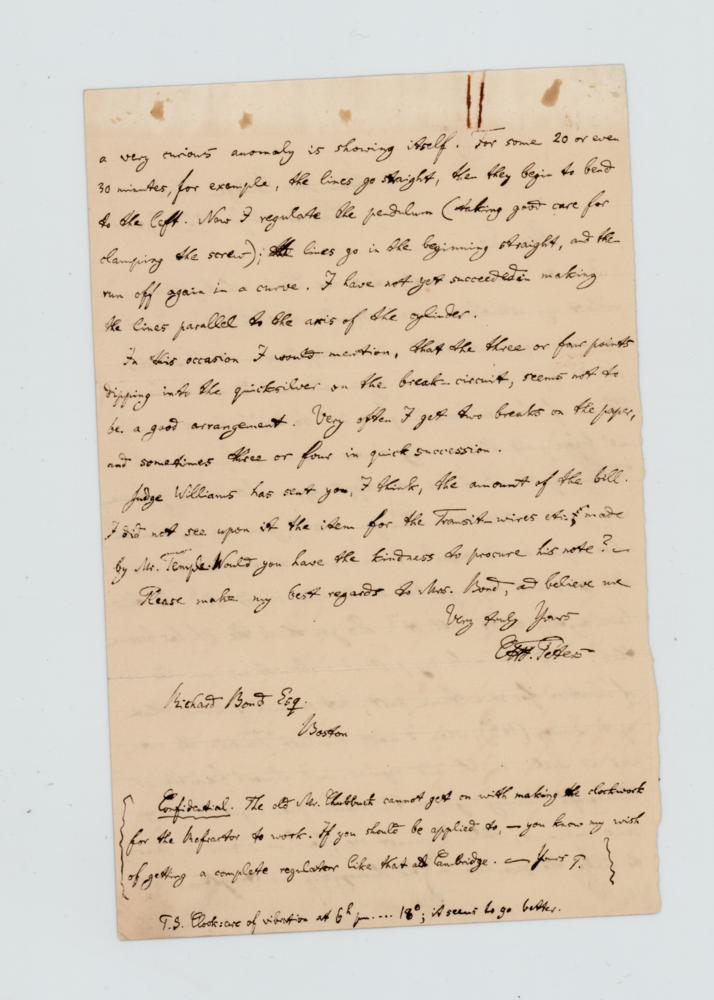 a very curious anomaly is showing itself. For some 20 or even
30 minutes, for example, the lines go straight, then they begin to bend
to the left. Now I regulate the pendulum (taking good care for
clamping the screw); the lines go in the beginning straight, and the
run off again in a curve. I have not yet succeeded in making
the lines parallel to the axis of the cylinder.
In this occasion I would mention, that the three or four points
dipping into the quicksilver on the break-circuit, seems not to
be a good arrangement. Very often I get two breaks on the paper,
and sometimes three or four in quick succession.
Judge Williams has sent you, I think, the amount of the bill.
I did not see upon it the item for the Transit-wires etc; made
by Mr. Temple. Would you have the kindness to procure his note? —
Please make my best regards to Mrs. Bond, ad believe me
Very truly Yours
C.H.F. Peters
Richard Bond Esq.
Boston
Confidential. The old Mr. Chubbuck cannot get on with making the clockwork
for the Refractor to work. If you should be applied to, — you know my wish
of getting a complete regulator like that at Cambridge. — Yours
Clock: arc of vibration at 6h pm .... 18°; it seems to go better.